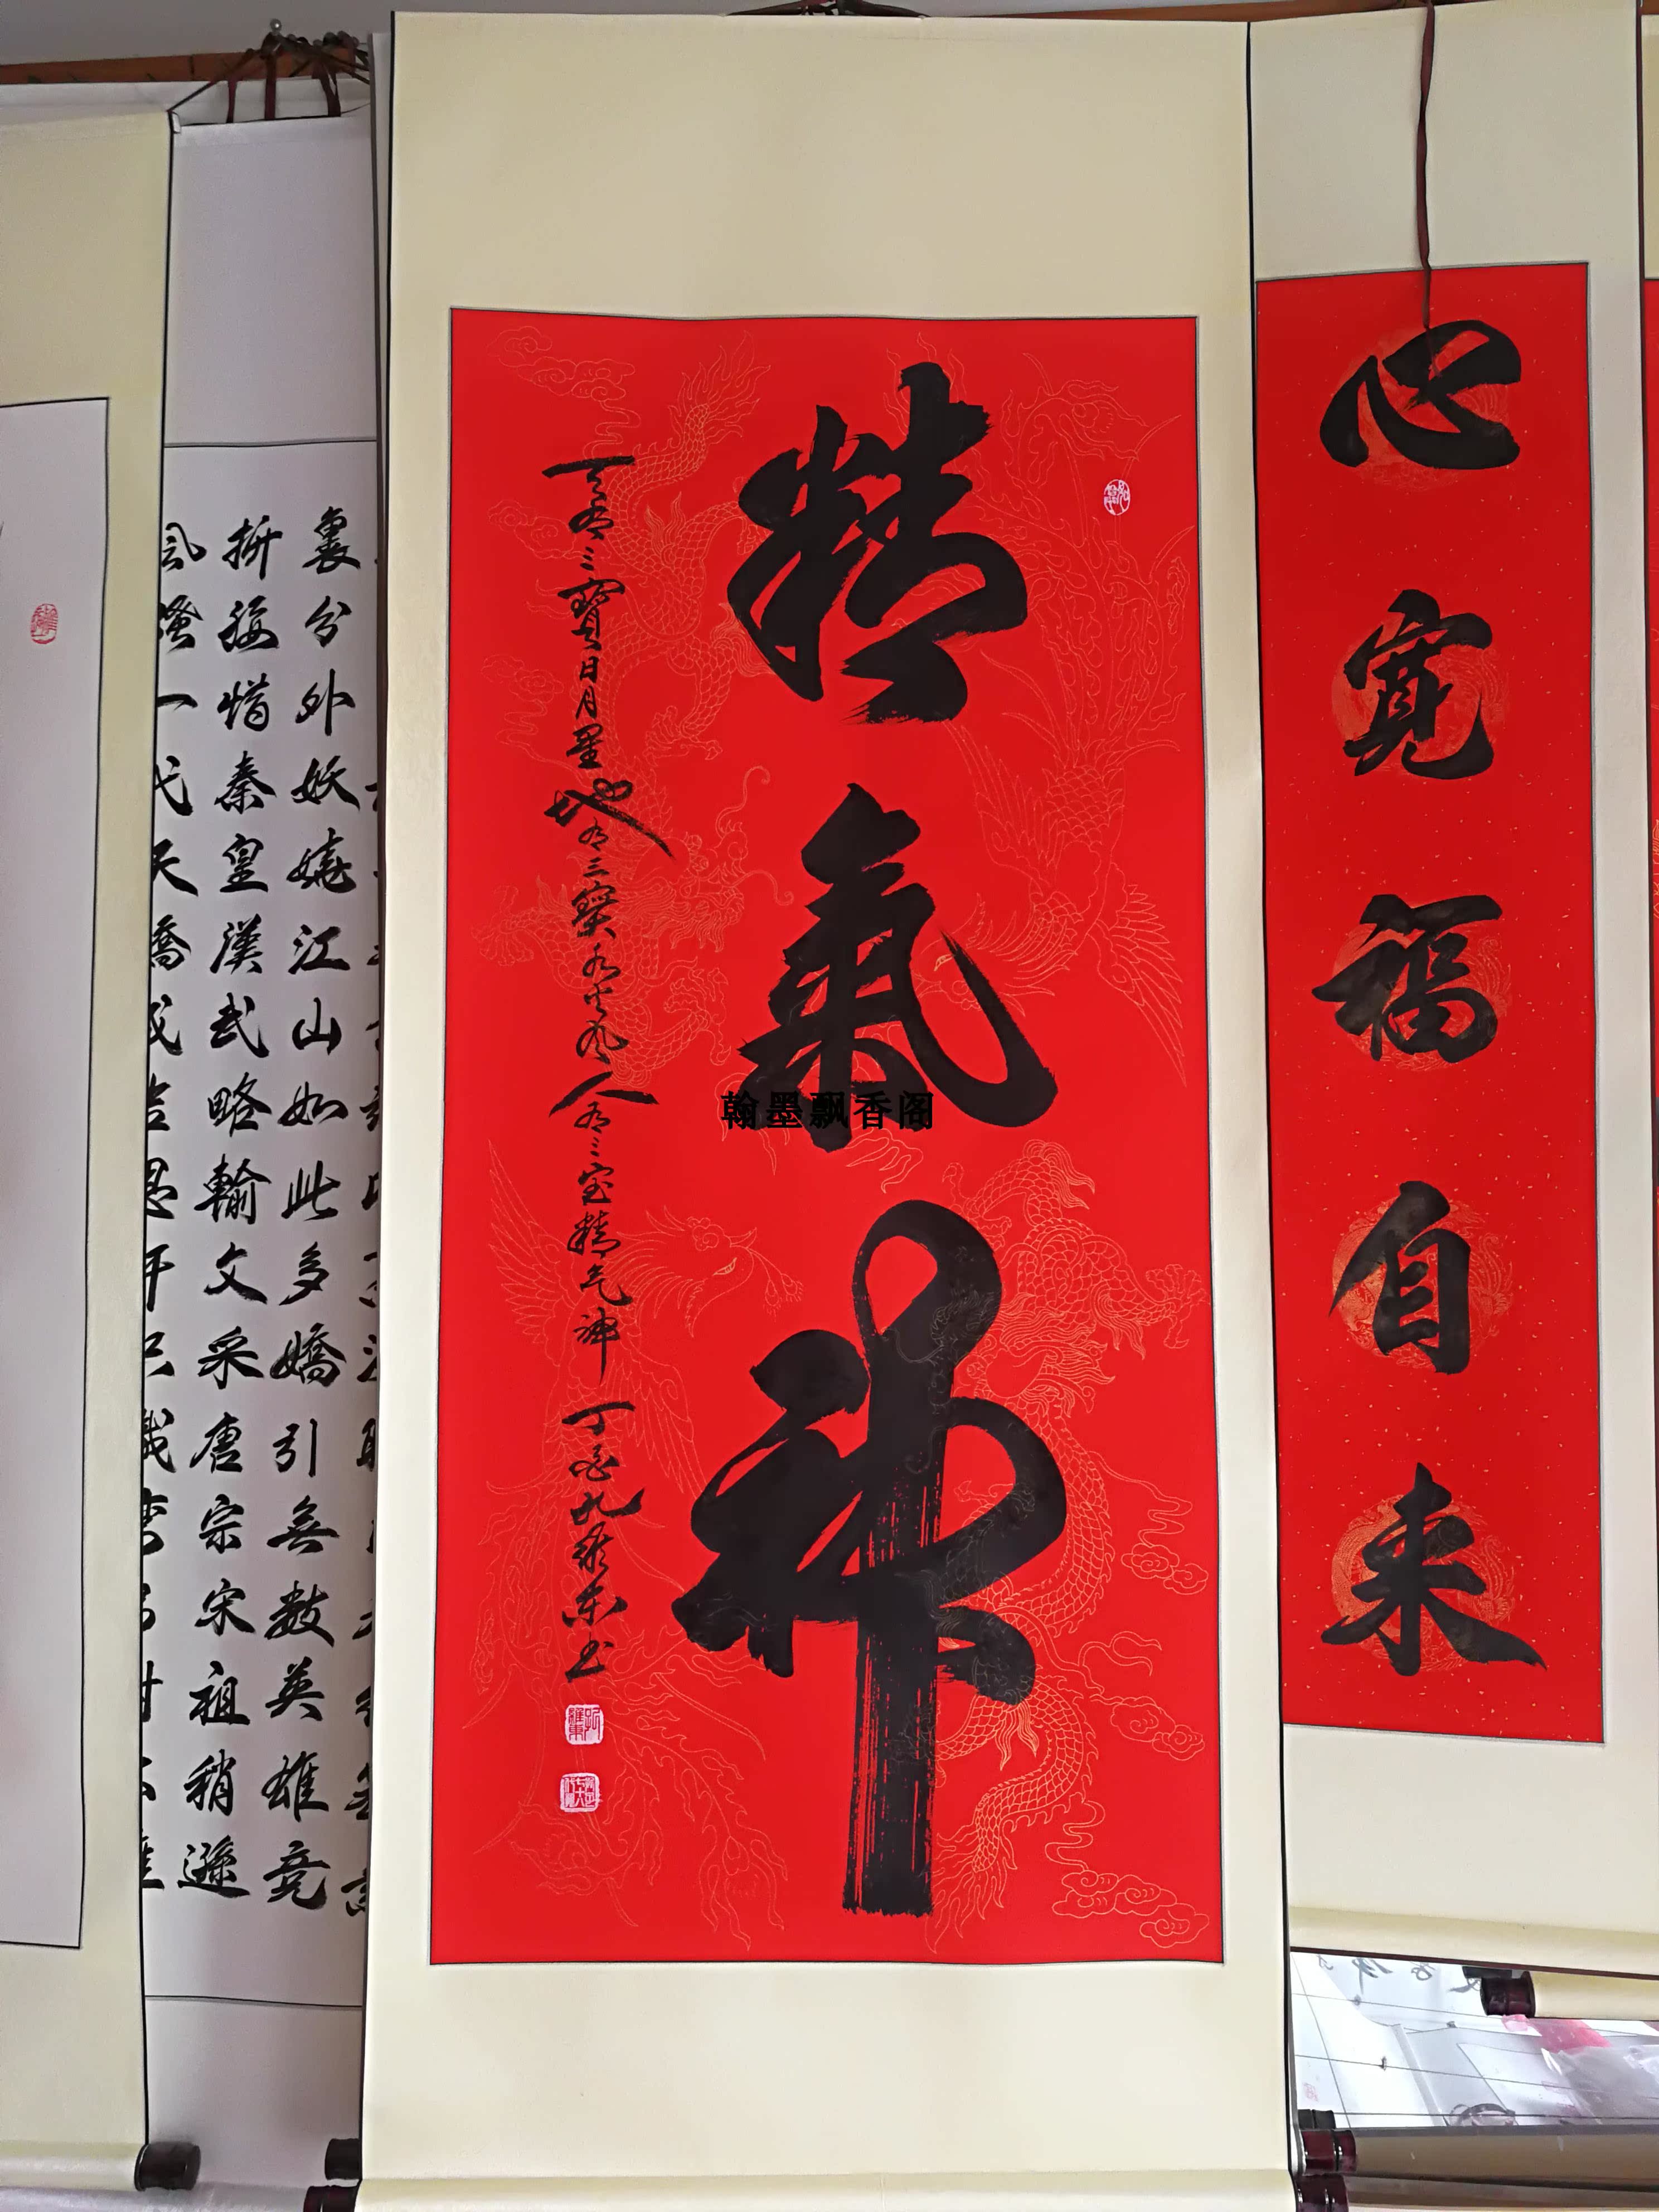 心寬福自来
精氣神
天有三寳日月星地有三寳水火风人有三宝精气神
丁酉孔維东书
翰墨飘香阁
裏分外妖嬈江山如此多嬌引無數英雄竞
折腰惜秦皇漢武略輸文采唐宗宋祖稍遜
風骚一代天驕成吉思汗只識弯弓射